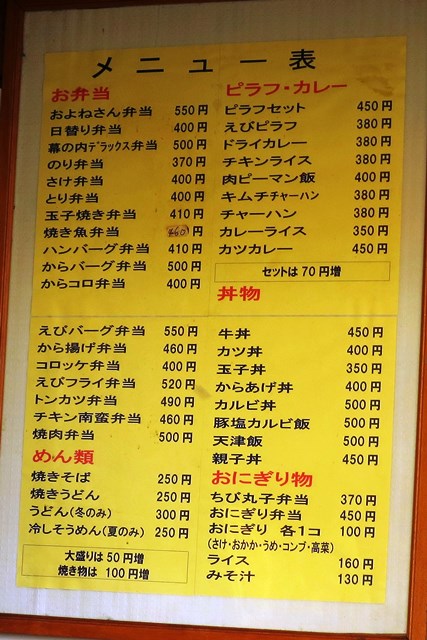 メニュー表
お弁当
およねさん弁当 550円
日替り弁当 400円
幕の内デラックス弁当 500円
のり弁当 370円
さけ弁当 400円
とり弁当 400円
玉子焼き弁当 410円
焼き魚弁当 円
ハンバーグ弁当 410円
からバーグ弁当 500円
からコロ弁当 400円
えびバーグ弁当 550円
から揚げ弁当 460円
コロッケ弁当 400円
えびフライ弁当 520円
トンカツ弁当 490円
チキン南蛮弁当 460円
焼肉弁当 500円
めん類
焼きそば 250円
焼きうどん 250円
うどん(冬のみ) 300円
冷しそうめん(夏のみ) 250円
大盛りは50円増
焼き物は 100円増
ピラフ・カレー
ピラフセット 450円
えびピラフ 380円
ドライカレー 380円
チキンライス 380円
肉ピーマン飯 400円
キムチチャーハン 380円
チャーハン 380円
カレーライス 350円
カツカレー 450円
セットは70円増
丼物
牛丼 450円
カツ丼 400円
玉子丼 350円
からあげ丼 400円
カルビ丼 500円
豚塩カルビ飯 500円
天津飯 500円
親子丼 450円
おにぎり物
ちび丸子弁当 370円
おにぎり弁当 450円
おにぎり 各1コ 100円
(さけ・おかか・うめ・コンブ・高菜)
ライス 160円
みそ汁 130円